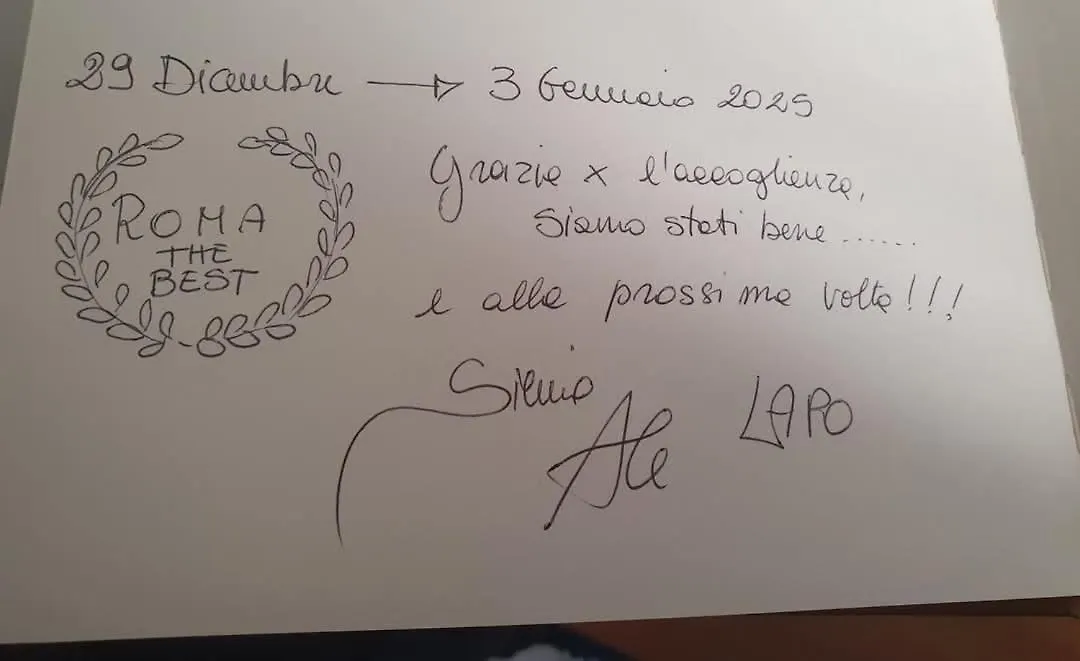 29 Dicembre → 3 Gennaio 2025
ROMA
THE
BEST
Grazie x l'accoglienza,
siamo stati bene ......
e alla prossima volta!!!
Ale
LAPO